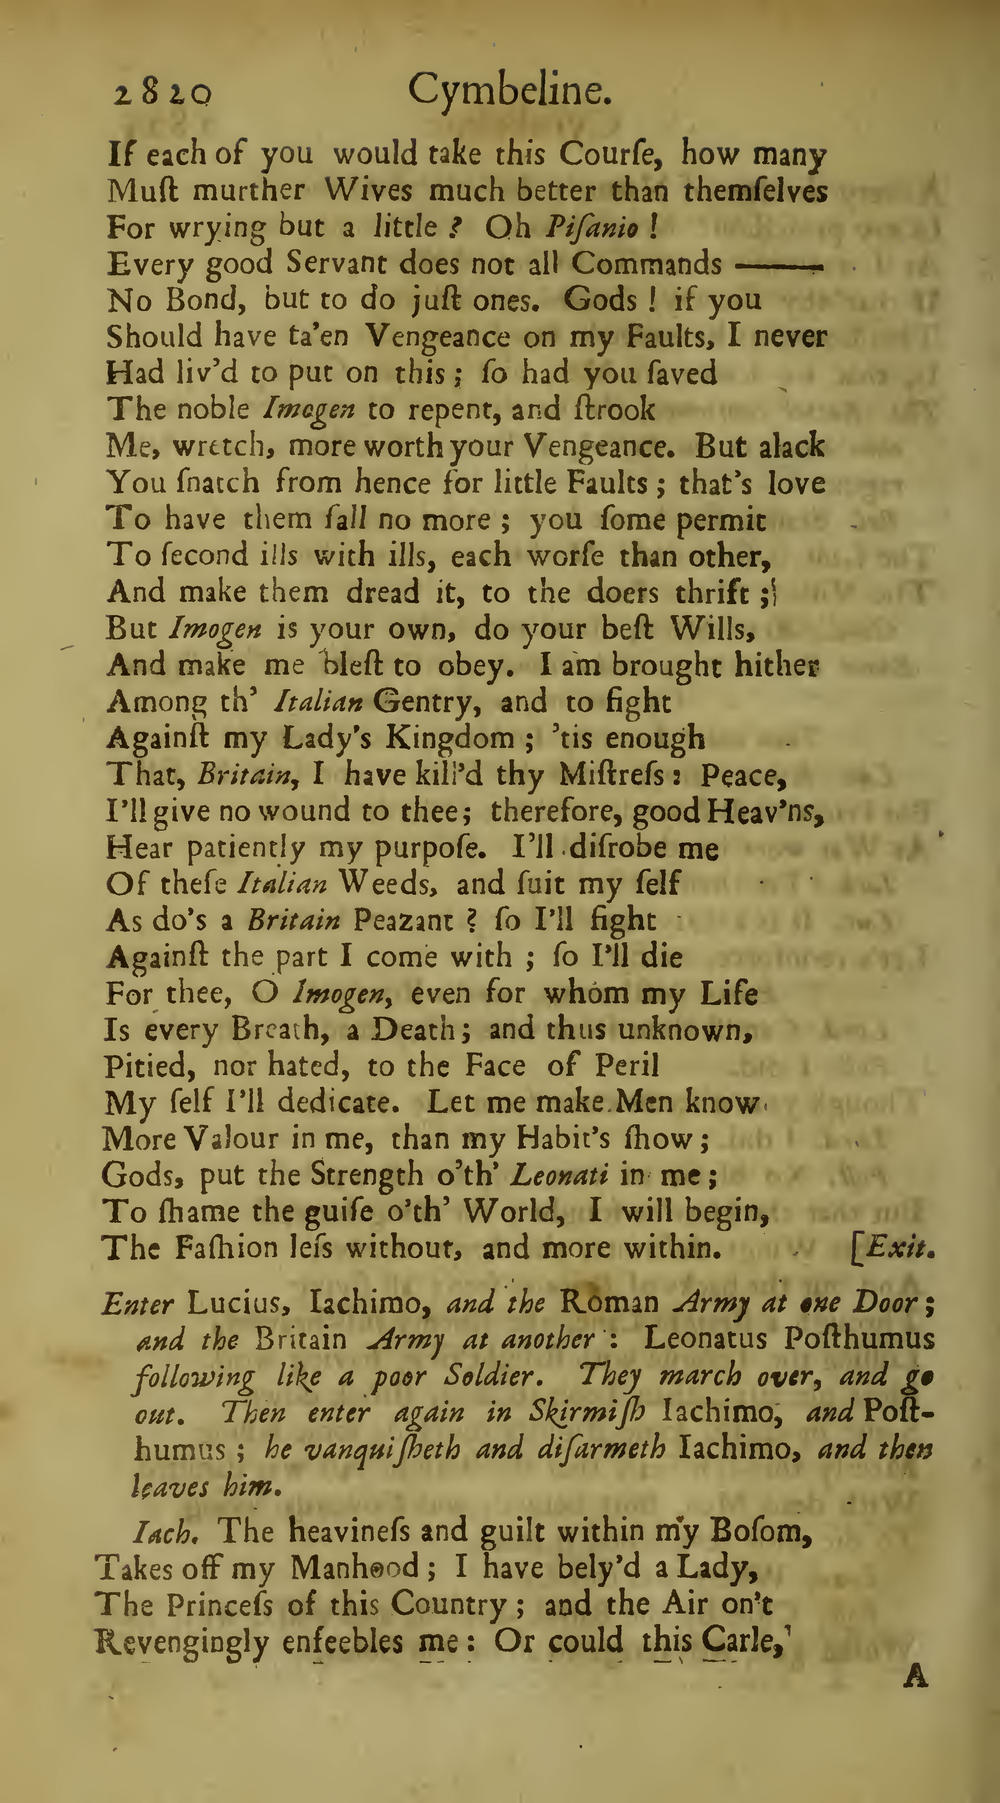 2820 Cymbeline.
If each of you would take this Courſe, how many
Muſt murther Wives much better than themſelves
For wrying but a little ? Oh Piſanio !
Every good Servant does not all Commands ———
No Bond, but to do juſt ones. Gods ! if you
Should have ta'en Vengeance on my Faults, I never
Had liv'd to put on this ; ſo had you ſaved
The noble Imogen to repent, and ſtrook
Me, wretch, more worth your Vengeance. But alack
You ſnatch from hence for little Faults ; that's love
To have them fall no more ; you ſome permit
To ſecond ills with ills, each worſe than other,
And make them dread it, to the doers thrift ;
But Imogen is your own, do your beſt Wills,
And make me bleſt to obey. I am brought hither
Among th' Italian Gentry, and to fight
Againſt my Lady's Kingdom ; 'tis enough
That, Britain, I have kill'd thy Miſtreſs : Peace,
I'll give no wound to thee ; therefore, good Heav'ns,
Hear patiently my purpoſe. I'll diſrobe me
Of theſe Italian Weeds, and ſuit my ſelf
As do's a Britain Peazant ? ſo I'll fight
Againſt the part I come with ; ſo I'll die
For thee, O Imogen, even for whom my Life
Is every Breath, a Death ; and thus unknown,
Pitied, nor hated, to the Face of Peril
My ſelf I'll dedicate. Let me make Men know
More Valour in me, than my Habit's ſhow ;
Gods, put the Strength o'th' Leonati in me ;
To ſhame the guiſe o'th' World, I will begin,
The Faſhion leſs without, and more within. [Exit.
Enter Lucius, Iachimo, and the Roman Army at one Door ;
and the Britain Army at another : Leonatus Poſthumus
following like a poor Soldier. They march over, and go
out. Then enter again in Skirmiſh Iachimo, and Poſt-
humus ; he vanquiſheth and diſarmeth Iachimo, and then
leaves him.
Iach. The heavineſs and guilt within my Boſom,
Takes off my Manhood ; I have bely'd a Lady,
The Princeſs of this Country ; and the Air on't
Revengingly enfeebles me : Or could this Carle,
A